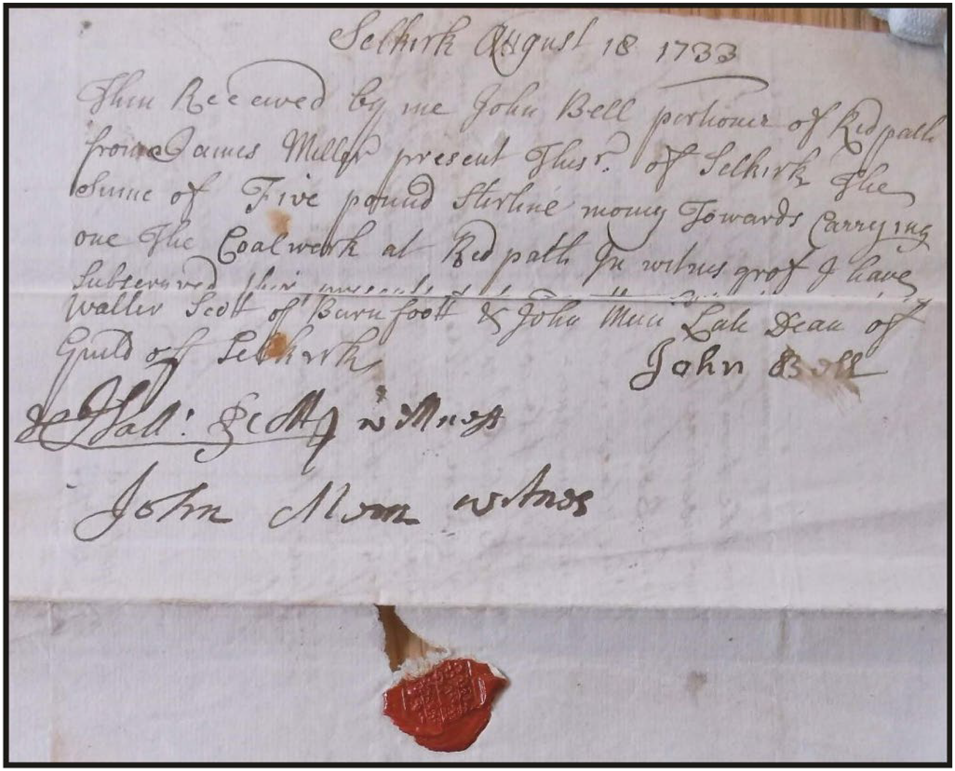 Selkirk August 18 1733
Then Received by me John Bell portioner of Redpath
from James Miller present Thesr. of Selkirk The
Sume of Five pound Sterline money Towards Carrying
one The Coalwork at Redpath In witnes qrof I have
Subscrived thir presents
Walter Scott of Burnfoott & John Late Dean of
Guild off Selkirk
John Bell
Wall: Scott witness
John witnes